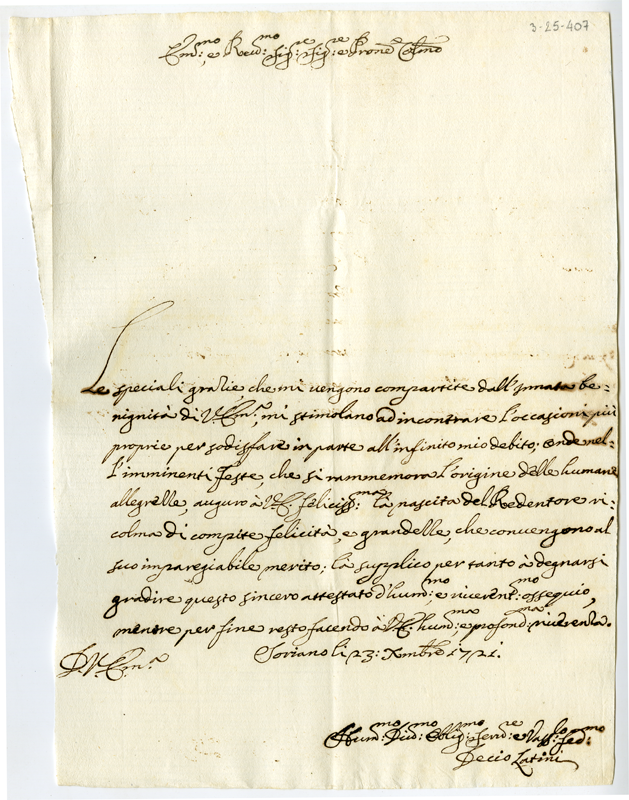 3-25-407
Em:mo e Rev:mo Sig:re Sig:re e Pron:e Col:mo
Le speciali grazie che mi vengono compartite dall'innata be=
nignità di V. Em:a, mi stimolano ad incontrare l'occasioni più
proprie per sodisfare in parte all'infinito mio debito; onde nel=
l'imminenti Feste, che si rammemora l'origine delle humane
allegrezze, auguro à V. E. feliciss:ma la nascita del Redentore ri=
colma di compite felicità, e grandezze, che convengono al
suo impareggiabile merito; la supplico per tanto à degnarsi
gradire questo sincero attestato d'hum:mo e riverent:mo ossequio,
mentre per fine resto facendo à V. E. hum:ma e profond:ma riverenza.
D. V. Em:a Soriano li 23: Xmbre 1721.
Hum:mo Div:mo Oblig:mo Serv:re e Vass:lo fed:mo
Decio Latini